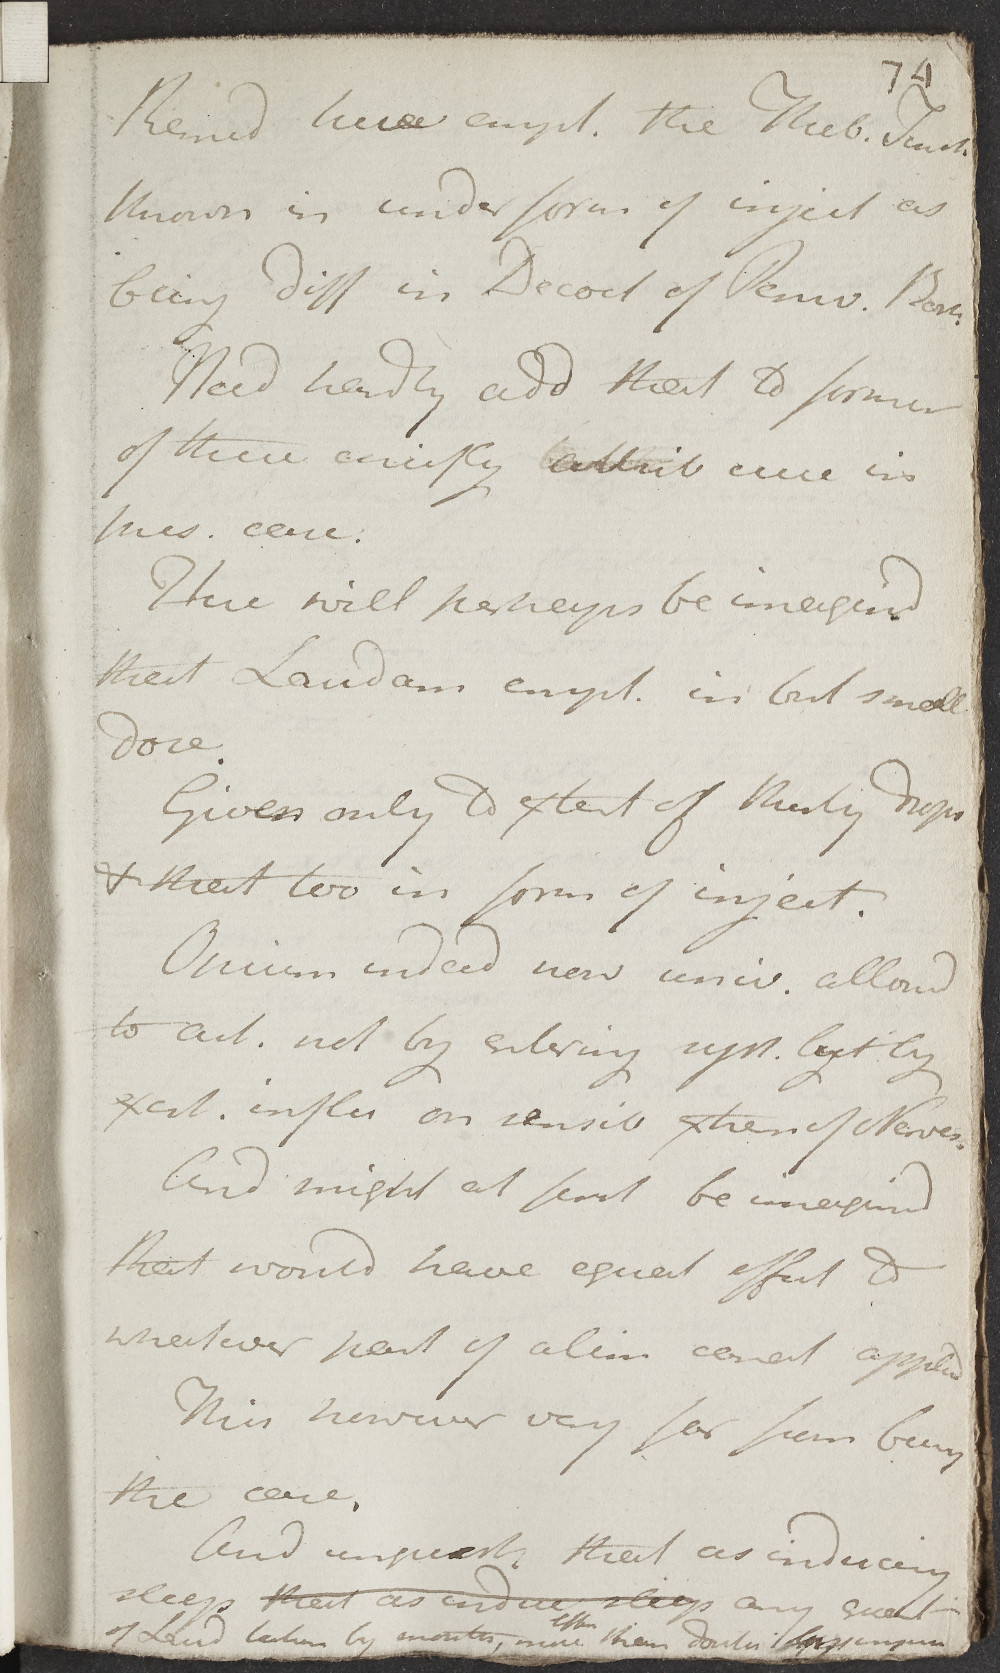 74
Remed here empl. the Theb. Tinct.
known in under form of inject as
being diff in Decoct of Peruv. Bark.
Need hardly add that to former
of these chiefly attrib cure in
pres. case.
Here will perhaps be imagind
that Laudam empl. in but small
dose.
Given only to xtent of thirty drops
& that too in form of inject.
Opium indeed now univ. allowd
to act. not by entering syst. but by
xert. influ on sensib xtrem of Nerves.
And might at first be imagind
that would have equal effect to
whatever part of alim canal applied
This however very far from being
the case.
And unquest. that as inducing
sleep that as induc sleep any quant
of Laud taken by mouth, more effec than double